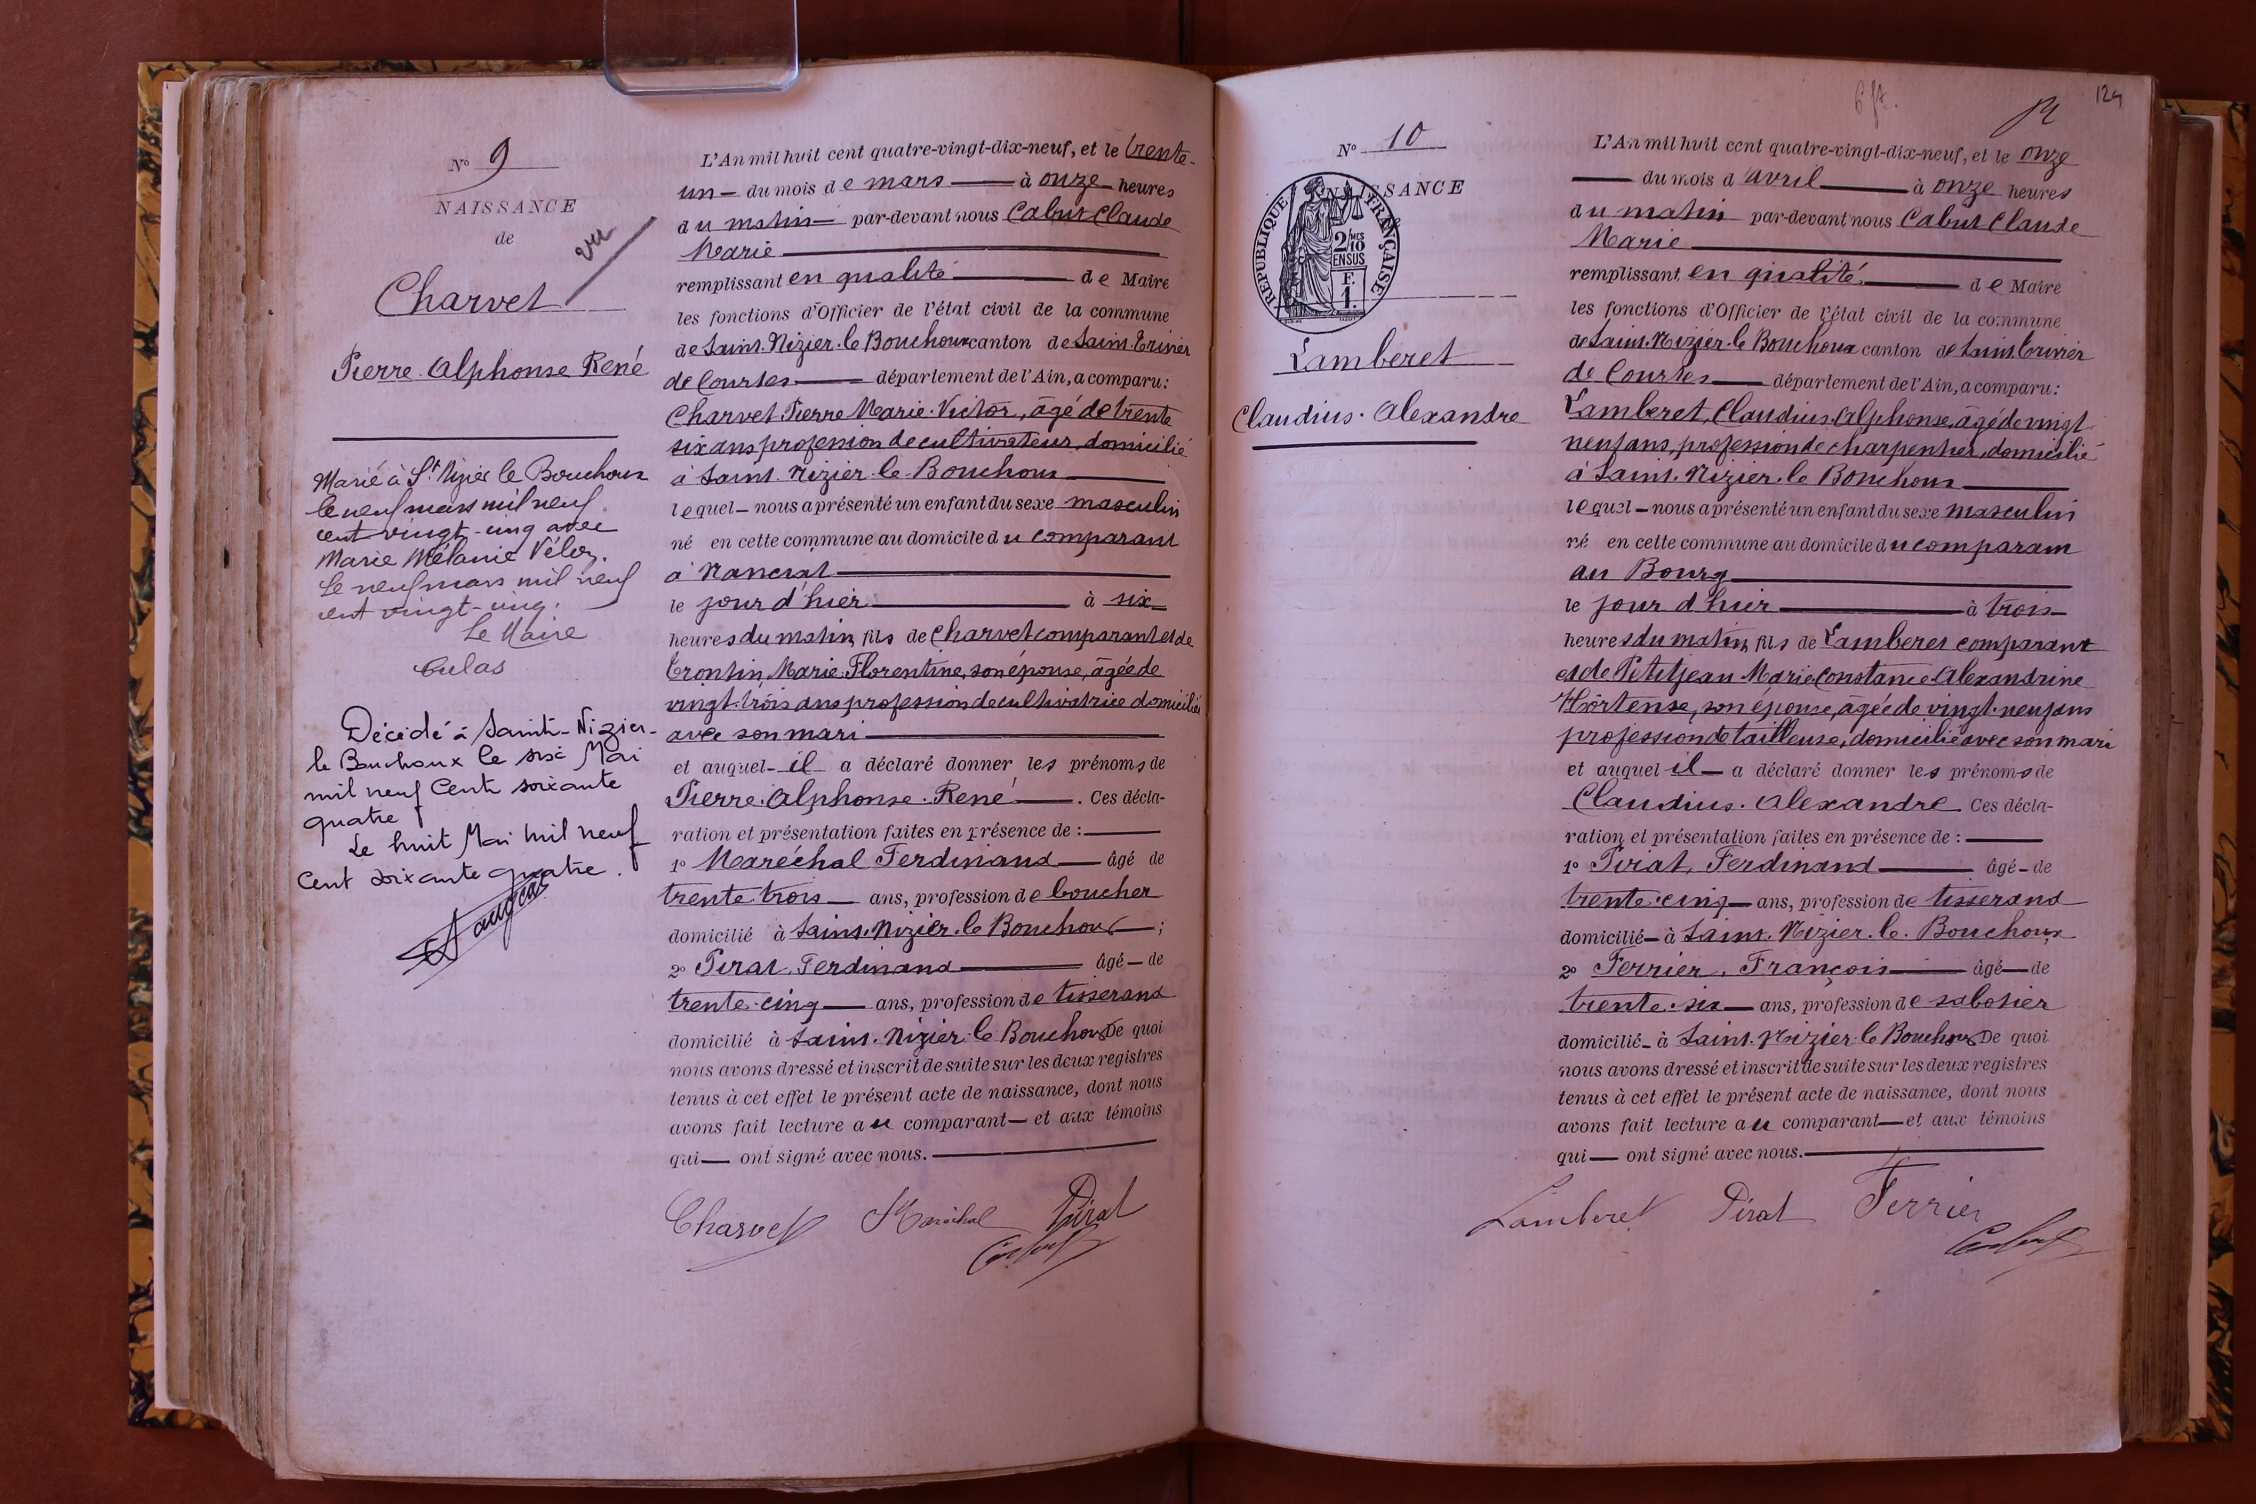 N° 9
NAISSANCE
de
vu
Charvet
Pierre Alphonse René
Marié à St Nizier le Bouchoux
le neuf mars mil neuf
cent vingt-cinq avec
Marie Mélanie Véloz.
Le neuf mars mil neuf
cent vingt-cinq.
Le Maire
Culas
Décédé à Saint-Nizier-
le Bouchoux le six Mai
mil neuf Cent soixante
quatre
Le huit Mai mil neuf
Cent soixante quatre.
L'An mil huit cent quatre-vingt-dix-neuf, et le trente-
un — du mois de mars — à onze heures
du matin — par-devant nous Cabut Claude
Marie
remplissant en qualité — de Maire
les fonctions d'Officier de l'état civil de la commune
de Saint-Nizier-le Bouchoux canton de Saint-Trivier
de Courtes — département de l'Ain, a comparu:
Charvet Pierre Marie Victor, âgé de trente
six ans profession de cultivateur, domicilié
à Saint-Nizier-le-Bouchoux
lequel — nous a présenté un enfant du sexe masculin
né en cette commune au domicile du comparant
à Nancrat
le jour d'hier — à six
heures du matin, fils de Charvet comparant et de
Trontin, Marie Florentine, son épouse, âgée de
vingt-trois ans profession de cultivatrice domiciliée
avec son mari
et auquel — il a déclaré donner les prénoms de
Pierre Alphonse René —. Ces décla-
ration et présentation faites en présence de :
1° Maréchal Ferdinand — âgé de
trente trois — ans, profession de boucher
domicilié à Saint-Nizier-le Bouchoux — ;
2° Pirat Ferdinand — âgé — de
trente-cinq — ans, profession de tisserand
domicilié à Saint-Nizier-le Bouchoux De quoi
nous avons dressé et inscrit de suite sur les deux registres
tenus à cet effet le présent acte de naissance, dont nous
avons fait lecture au comparant — et aux témoins
qui — ont signé avec nous.
Charvet Maréchal Pirat
Cabut
124
N° 10
NAISSANCE
REPUBLIQUE FRANÇAISE
2/10 MES
EN SUS
F.
1.
Lamberet
Claudius Alexandre
L'An mil huit cent quatre-vingt-dix-neuf, et le onze
— du mois d'avril — à onze heures
du matin par-devant nous Cabut Claude
Marie
remplissant en qualité — de Maire
les fonctions d'Officier de l'état civil de la commune
de Saint-Nizier-le Bouchoux canton de Saint Trivier
de Courtes — département de l'Ain, a comparu:
Lamberet, Claudius Alphonse, âgé de vingt
neuf ans, profession de charpentier, domicilié
à Saint-Nizier-le Bouchoux
lequel — nous a présenté un enfant du sexe masculin
né en cette commune au domicile du comparant
au Bourg
le jour d'hier — à trois
heures du matin, fils de Lamberet comparant
et de Petitjean Marie Constance Alexandrine
Hortense, son épouse, âgée de vingt-neuf ans
profession de tailleuse, domicilié avec son mari
et auquel il — a déclaré donner les prénoms de
Claudius Alexandre Ces décla-
ration et présentation faites en présence de :
1° Pirat, Ferdinand — âgé - de
trente-cinq — ans, profession de tisserand
domicilié — à Saint-Nizier-le-Bouchoux
2° Ferrier, François — âgé — de
trente-six — ans, profession de sabotier
domicilié - à Saint-Nizier-le Bouchoux De quoi
nous avons dressé et inscrit de suite sur les deux registres
tenus à cet effet le présent acte de naissance, dont nous
avons fait lecture au comparant — et aux témoins
qui — ont signé avec nous.
Lamberet Pirat Ferrier
Cabut